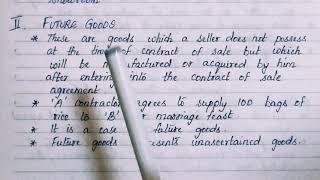 II. FUTURE GOODS
* These are goods which a seller does not possess
at the time of contract of sale but which
will be manufactured or acquired by him
after entering into the contract of sale
agreement
* 'A' contractor agrees to supply 100 bags of
rice to 'B' marriage feast
* It is a case future goods.
* Future goods unascertained goods.